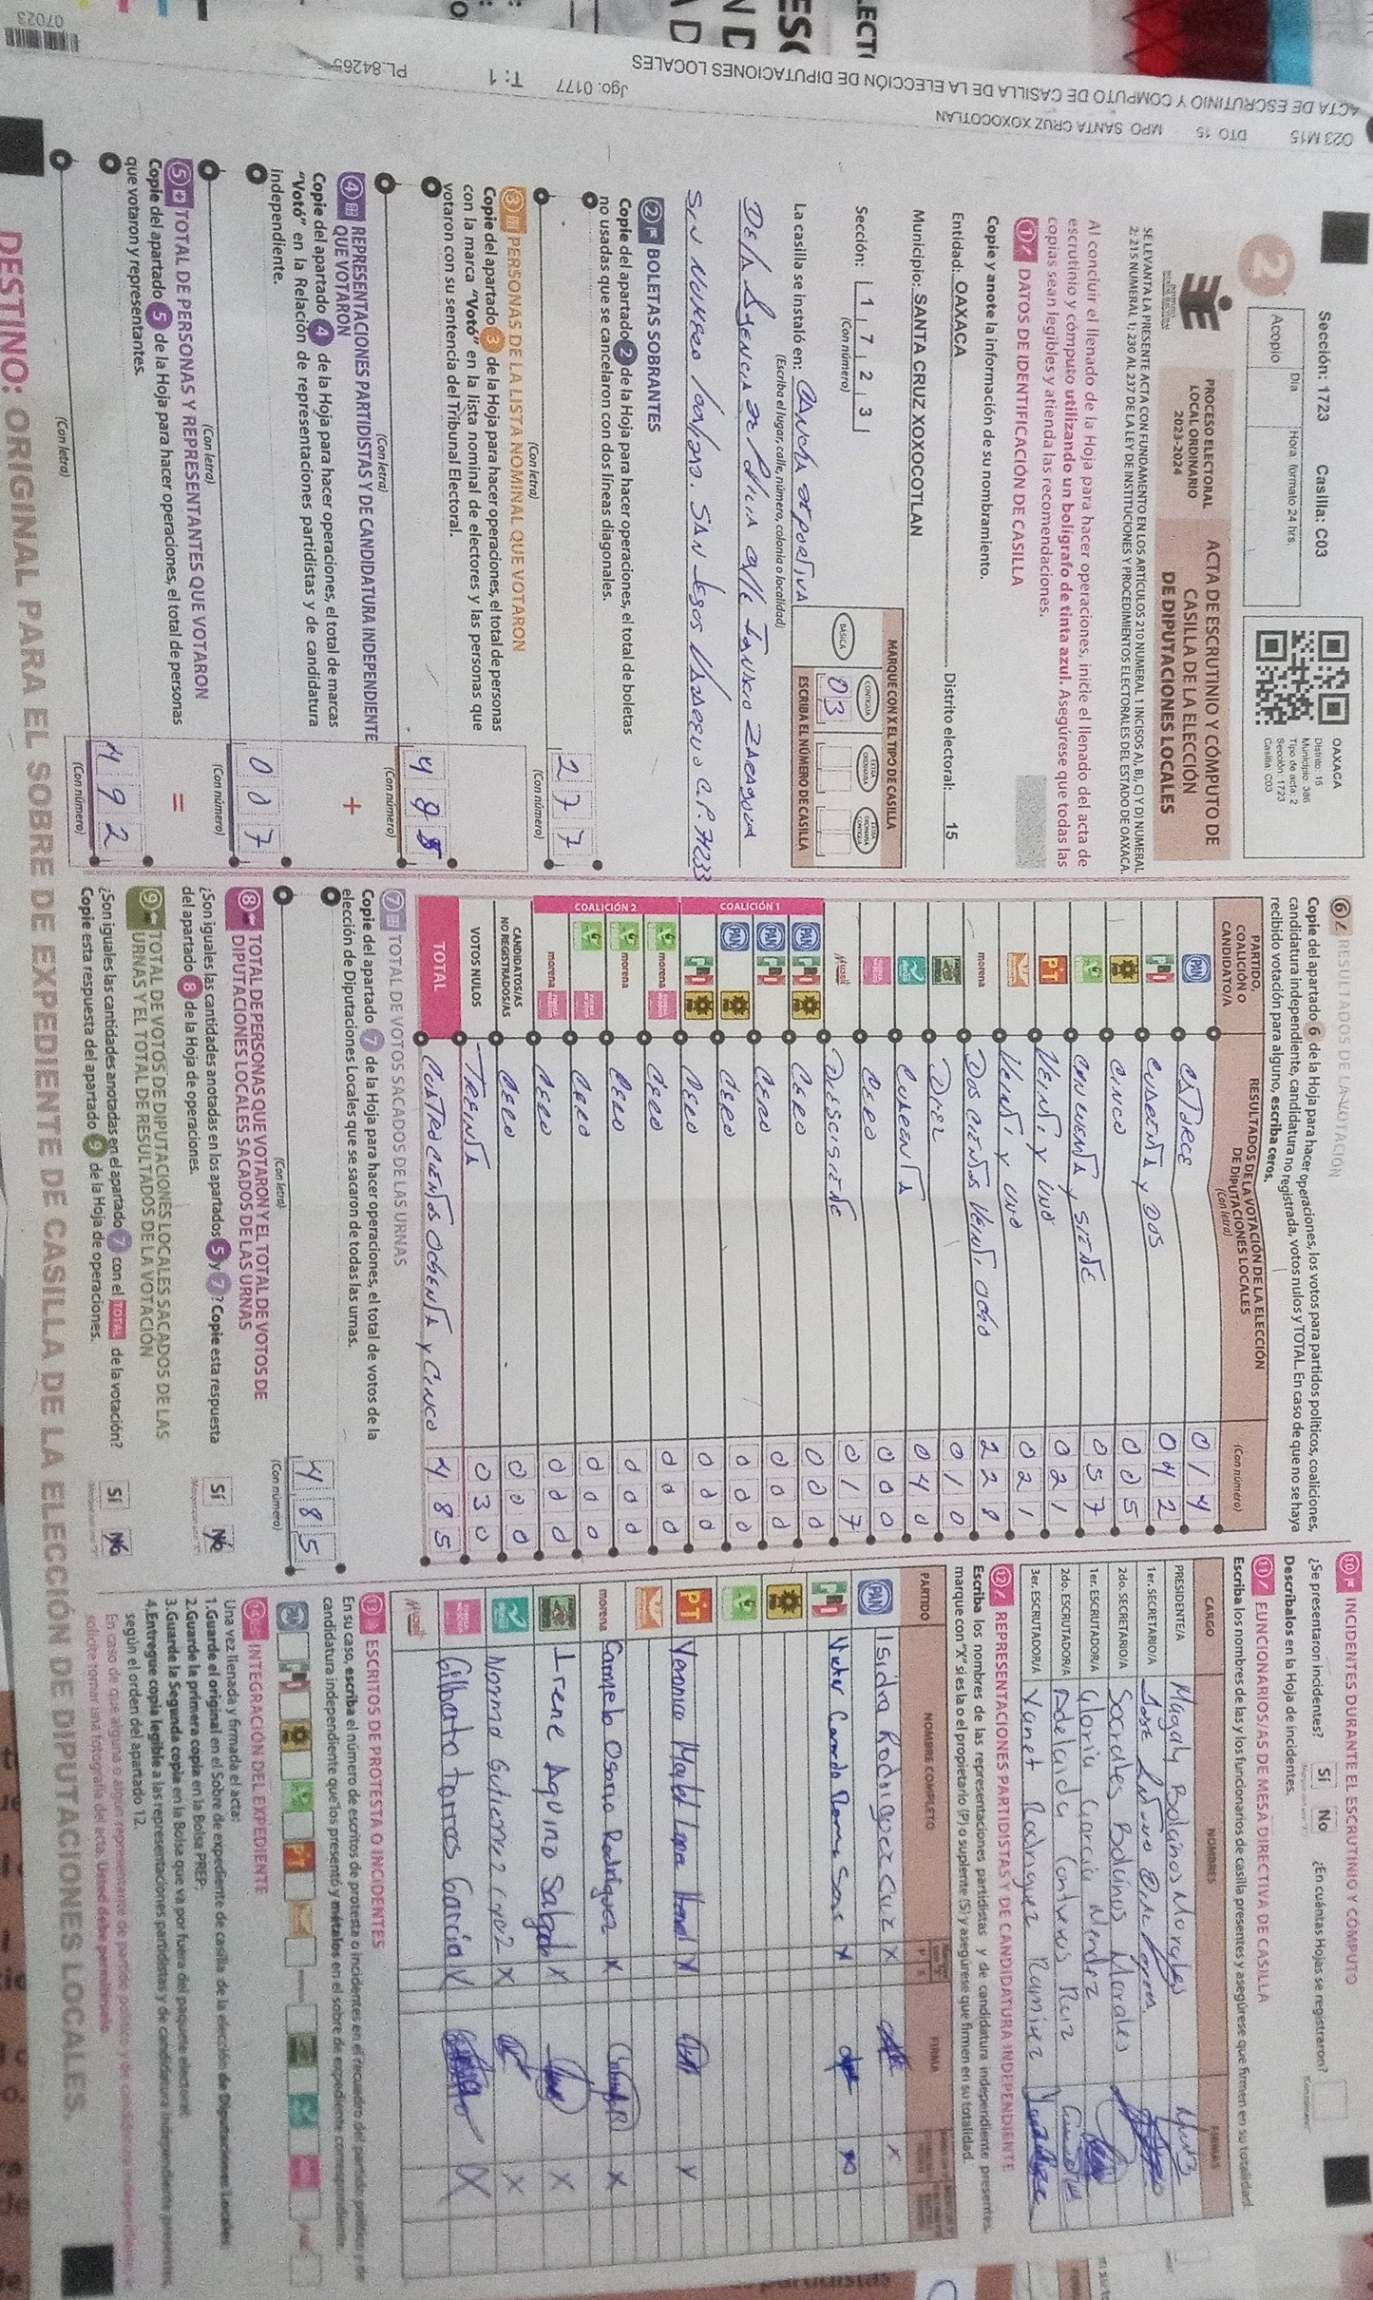 Sección: 1723 Casilla: C03
Día
Hora formato 24 hrs.
Acopio
2
OAXACA
Distrito: 15
Municipio: 386
Tipo de acta: 2
Sección: 1723
Casilla: C03
PROCESO ELECTORAL
LOCAL ORDINARIO
2023-2024
ACTA DE ESCRUTINIO Y CÓMPUTO DE
CASILLA DE LA ELECCIÓN
DE DIPUTACIONES LOCALES
SE LEVANTA LA PRESENTE ACTA CON FUNDAMENTO EN LOS ARTÍCULOS 210 NUMERAL 1 INCISOS A), B), C) Y D) NUMERAL
2; 215 NUMERAL 1; 230 AL 237 DE LA LEY DE INSTITUCIONES Y PROCEDIMIENTOS ELECTORALES DEL ESTADO DE OAXACA.
Al concluir el llenado de la Hoja para hacer operaciones, inicie el llenado del acta de
escrutinio y cómputo utilizando un bolígrafo de tinta azul. Asegúrese que todas las
copias sean legibles y atienda las recomendaciones.
1 DATOS DE IDENTIFICACIÓN DE CASILLA
Copie y anote la información de su nombramiento.
Entidad: OAXACA Distrito electoral: 15
Municipio: SANTA CRUZ XOXOCOTLAN
Sección: 1 7 2 3
(Con número)
MARQUE CON X EL TIPO DE CASILLA
BÁSICA
CONTIGUA
EXTRAORDINARIA
ESCRIBA EL NÚMERO DE CASILLA
03
La casilla se instaló en: CANCHA DEPORTIVA
(Escriba el lugar, calle, número, colonia o localidad)
DE LA AGENCIA DE POLICIA CALLE IGNACIO ZARAGOZA
SIN NUMERO
2 BOLETAS SOBRANTES
Copie del apartado 2 de la Hoja para hacer operaciones, el total de boletas
no usadas que se cancelaron con dos líneas diagonales.
277
(Con letra) (Con número)
3 PERSONAS DE LA LISTA NOMINAL QUE VOTARON
Copie del apartado 3 de la Hoja para hacer operaciones, el total de personas
con la marca "Votó" en la lista nominal de electores y las personas que
votaron con su sentencia del Tribunal Electoral.
(Con letra) (Con número)
4 REPRESENTACIONES PARTIDISTAS Y DE CANDIDATURA INDEPENDIENTE
QUE VOTARON
+
Copie del apartado 4 de la Hoja para hacer operaciones, el total de marcas
"Votó" en la Relación de representaciones partidistas y de candidatura
independiente.
007
(Con letra) (Con número)
5 TOTAL DE PERSONAS Y REPRESENTANTES QUE VOTARON
=
Copie del apartado 5 de la Hoja para hacer operaciones, el total de personas
que votaron y representantes.
492
(Con letra) (Con número)
6 RESULTADOS DE LA VOTACIÓN
Copie del apartado 6 de la Hoja para hacer operaciones, los votos para partidos políticos, coaliciones,
candidatura independiente, candidatura no registrada, votos nulos y TOTAL. En caso de que no se haya
recibido votación para alguno, escriba ceros.
PARTIDO,
COALICIÓN O
CANDIDATO/A
RESULTADOS DE LA VOTACIÓN DE LA ELECCIÓN
DE DIPUTACIONES LOCALES
(Con letra)
(Con número)
PAN CATORCE 014
PRI CUARENTA Y DOS 042
CINCO 005
CINCUENTA Y SIETE 057
PT VEINTI Y UNO 021
VEINTI Y UNO 021
morena DOS CIENTOS VEINTI OCHO 228
DIEZ 010
CUARENTA 040
CERO 000
DIECISIETE 017
COALICIÓN 1
PAN PRI CERO 000
PAN PRI CERO 000
PAN CERO 000
PRI CERO 000
COALICIÓN 2
morena CERO 000
morena CERO 000
CERO 000
morena CERO 000
CANDIDATOS/AS
NO REGISTRADOS/AS CERO 000
VOTOS NULOS TREINTA 030
TOTAL CUATROCIENTOS OCHENTA Y CINCO 485
7 TOTAL DE VOTOS SACADOS DE LAS URNAS
Copie del apartado 7 de la Hoja para hacer operaciones, el total de votos de la
elección de Diputaciones Locales que se sacaron de todas las urnas.
485
(Con letra) (Con número)
8 TOTAL DE PERSONAS QUE VOTARON Y EL TOTAL DE VOTOS DE
DIPUTACIONES LOCALES SACADOS DE LAS URNAS
¿Son iguales las cantidades anotadas en los apartados 5 y 7? Copie esta respuesta
del apartado 8 de la Hoja de operaciones.
Sí No
9 TOTAL DE VOTOS DE DIPUTACIONES LOCALES SACADOS DE LAS
URNAS Y EL TOTAL DE RESULTADOS DE LA VOTACIÓN
¿Son iguales las cantidades anotadas en el apartado 7 con el TOTAL de la votación?
Copie esta respuesta del apartado 9 de la Hoja de operaciones.
Sí No
10 INCIDENTES DURANTE EL ESCRUTINIO Y CÓMPUTO
¿Se presentaron incidentes? Sí No ¿En cuántas Hojas se registraron?
Descríbalos en la Hoja de incidentes.
11 FUNCIONARIOS/AS DE MESA DIRECTIVA DE CASILLA
Escriba los nombres de las y los funcionarios de casilla presentes y asegúrese que firmen en su totalidad.
CARGO NOMBRES FIRMAS
PRESIDENTE/A Magaly Bolaños Morales
1er. SECRETARIO/A Jose
2do. SECRETARIO/A Socrates Bolaños Morales
1er. ESCRUTADOR/A Gloria Garcia Mendez
2do. ESCRUTADOR/A Adelaida Contreras Ruiz
3er. ESCRUTADOR/A Yanet Rodriguez Ramirez
12 REPRESENTACIONES PARTIDISTAS Y DE CANDIDATURA INDEPENDIENTE
Escriba los nombres de las representaciones partidistas y de candidatura independiente presentes,
marque con "X" si es la o el propietario (P) o suplente (S) y asegúrese que firmen en su totalidad.
PARTIDO NOMBRE COMPLETO FIRMA
PAN Isidra Rodriguez Cruz X X
PRI X
PT Veronica X X
morena Carmelo Osorio Rodriguez X X
Irene Aquino Salgado X X
Norma Gutierrez X X
Gilberto Torres Garcia X X
13 ESCRITOS DE PROTESTA O INCIDENTES
En su caso, escriba el número de escritos de protesta o incidentes en el recuadro del partido político y de
candidatura independiente que los presentó y métalos en el sobre de expediente correspondiente.
PAN PRI PT
14 INTEGRACIÓN DEL EXPEDIENTE
Una vez llenada y firmada el acta:
1.Guarde el original en el Sobre de expediente de casilla de la elección de Diputaciones Locales
2.Guarde la primera copia en la Bolsa PREP;
3.Guarde la Segunda copia en la Bolsa que va por fuera del paquete electoral;
4.Entregue copia legible a las representaciones partidistas y de candidatura independiente presentes,
según el orden del apartado 12.
DESTINO: ORIGINAL PARA EL SOBRE DE EXPEDIENTE DE CASILLA DE LA ELECCIÓN DE DIPUTACIONES LOCALES.
023 M15 DTO 15 MPO SANTA CRUZ XOXOCOTLAN
ACTA DE ESCRUTINIO Y COMPUTO DE CASILLA DE LA ELECCIÓN DE DIPUTACIONES LOCALES
Jgo. 0177 T: 1 PL.84265
07023